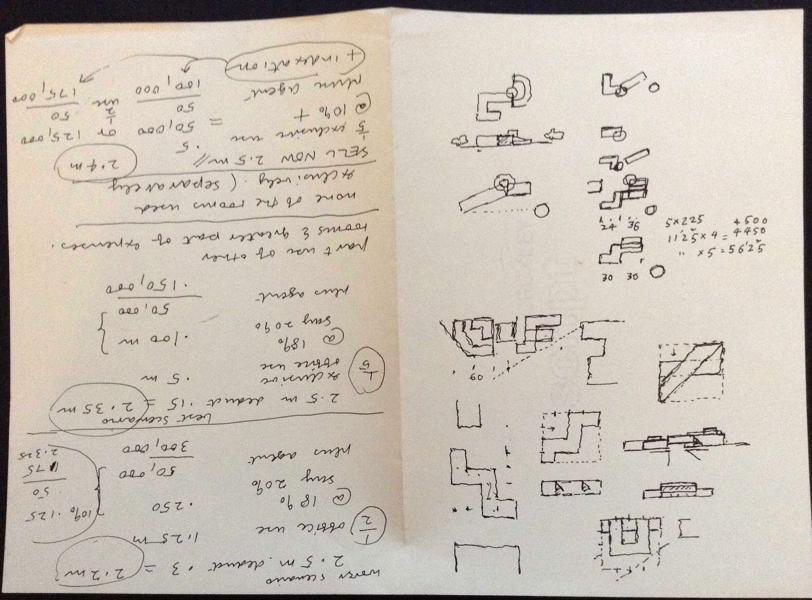 worse scenario
2.5 m. deduct .3 = 2.2 m
1/2 office use 1.25 m
@ 18% .250
say 20% 50,000
plus agent 300,000
10% .125
.50
2.325
best scenario
2.5 m deduct .15 = 2.35 m
1/5 exclusive .5 m
office use
@ 18% .100 m
say 20% 50,000
plus agent .150,000
part use of other
rooms & greater part of expenses.
none of the rooms used
exclusively. (separately
SELL NOW 2.5 m // 2.4 m
1/5 exclusive use .5
@ 10% = 50,000 or 125,000
+ 50 1/2 use 50
plus agent 100,000 175,000
+ indexation
24 36
5 x 225 4500
11'25 x 4 = 4450
" x 5 = 5625
30 30
60